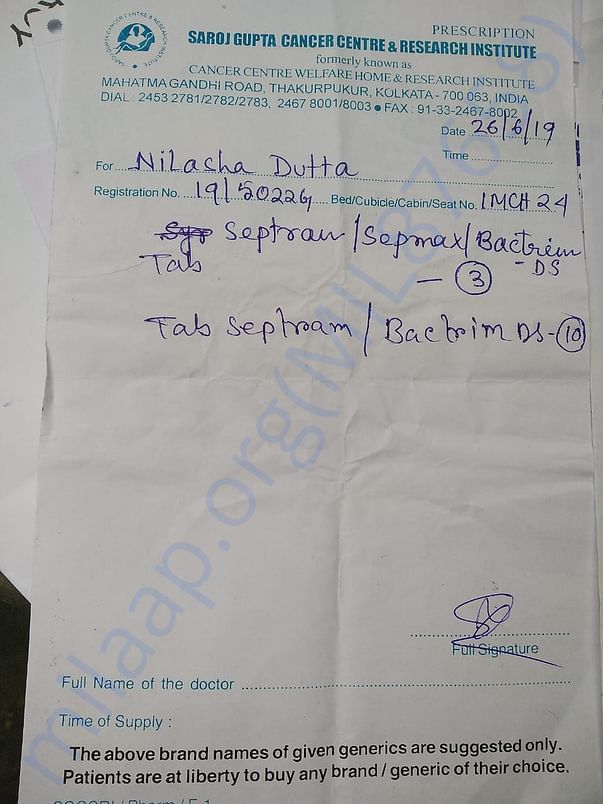 PRESCRIPTION
SAROJ GUPTA CANCER CENTRE & RESEARCH INSTITUTE
formerly known as
CANCER CENTRE WELFARE HOME & RESEARCH INSTITUTE
MAHATMA GANDHI ROAD, THAKURPUKUR, KOLKATA - 700 063, INDIA
DIAL : 2453 2781/2782/2783, 2467 8001/8003 ● FAX : 91-33-2467-8002
Date 26/6/19
Time
For Nilasha Dutta
Registration No. 19/50226 Bed/Cubicle/Cabin/Seat No. IMCH 24
Syr Septran/Sepmax/Bactrim
Tab - DS
- 3
Tab Septram / Bactrim DS - 10
Full Signature
Full Name of the doctor
Time of Supply :
The above brand names of given generics are suggested only.
Patients are at liberty to buy any brand / generic of their choice.
milaap.org